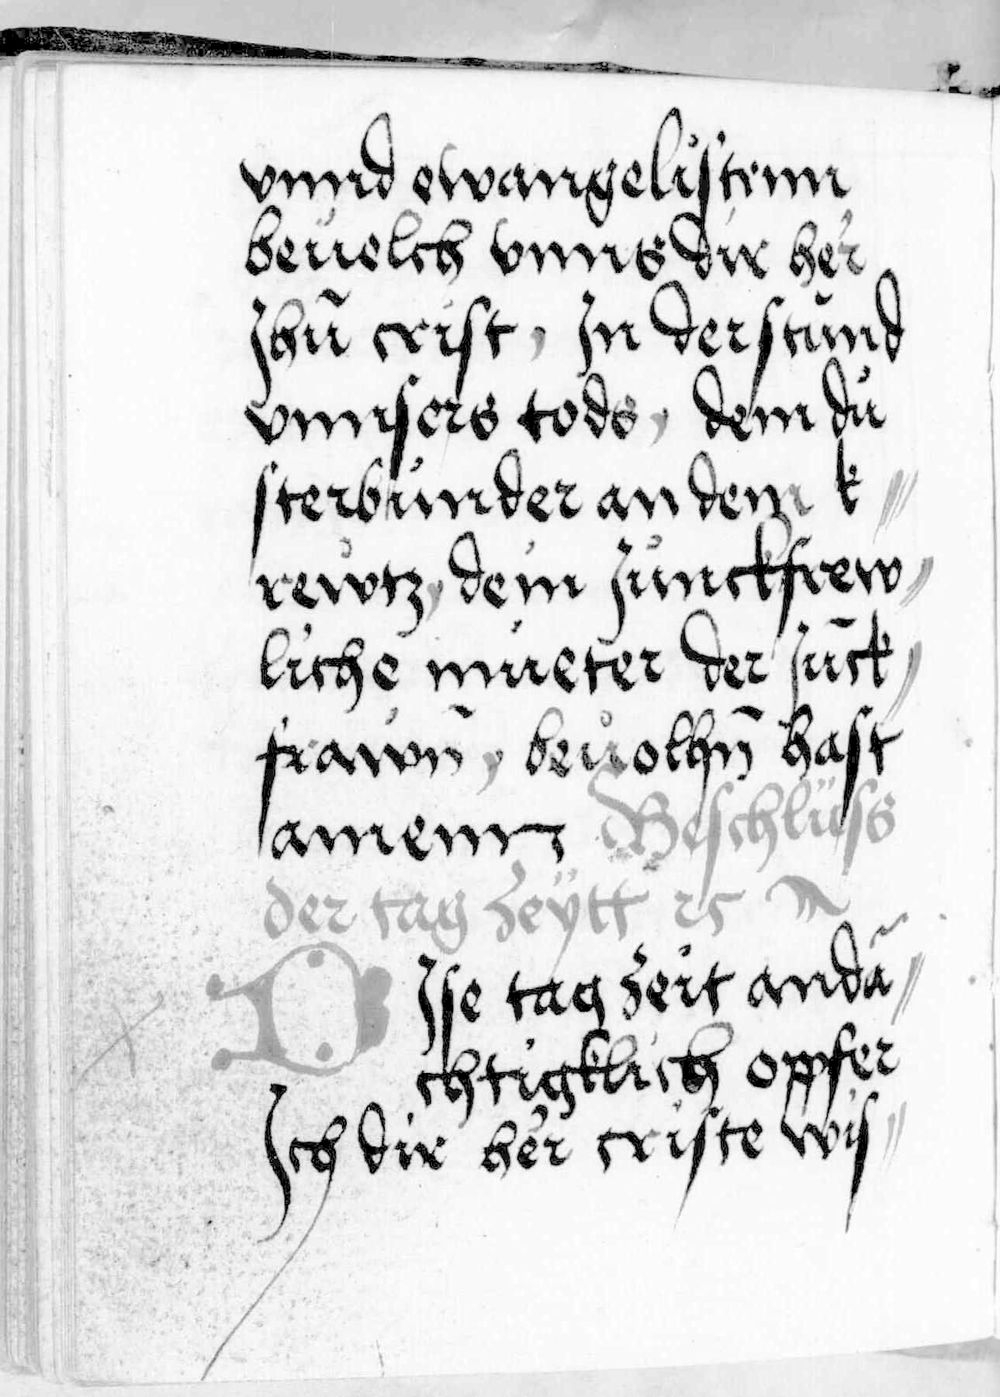 vnnd ewangelistenn
beuelch vnns dir her
Jhū crist, Jn der stūnd
vnnsers tods, dem du
sterbunder an dem k〃
rewtz, dein Junckfrew〃
liche mueter der Jūck〃
frawn̄, beuolhn̄ hast
amenn Beschlüss
der tag Zeÿtt ꝛc
DJse tag zeit andā〃
chtigklich opfer
Jch dir her criste wis〃